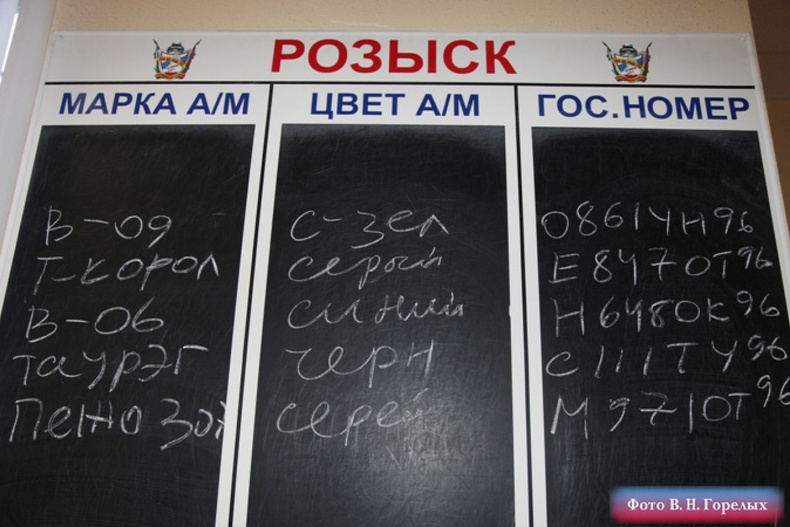 РОЗЫСК
МАРКА А/М ЦВЕТ А/М ГОС.НОМЕР
В-09 С-ЗЕЛ О861УН96
Т-КОРОЛ СЕРЫЙ Е847ОТ96
В-06 СИНИЙ Н648ОК96
ТАУРЭГ ЧЕРН С111ТУ96
ПЕЖО 307 СЕРЕЙ М971ОТ96
Фото В. Н. Горелых